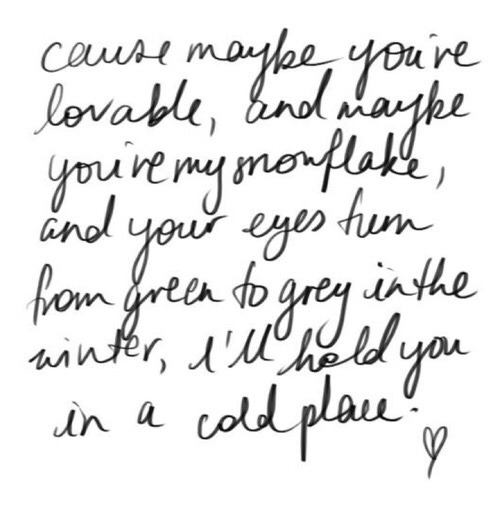 cause maybe you're
lovable, and maybe
you're my snowflake,
and your eyes turn
from green to grey in the
winter, I'll hold you
in a cold place.